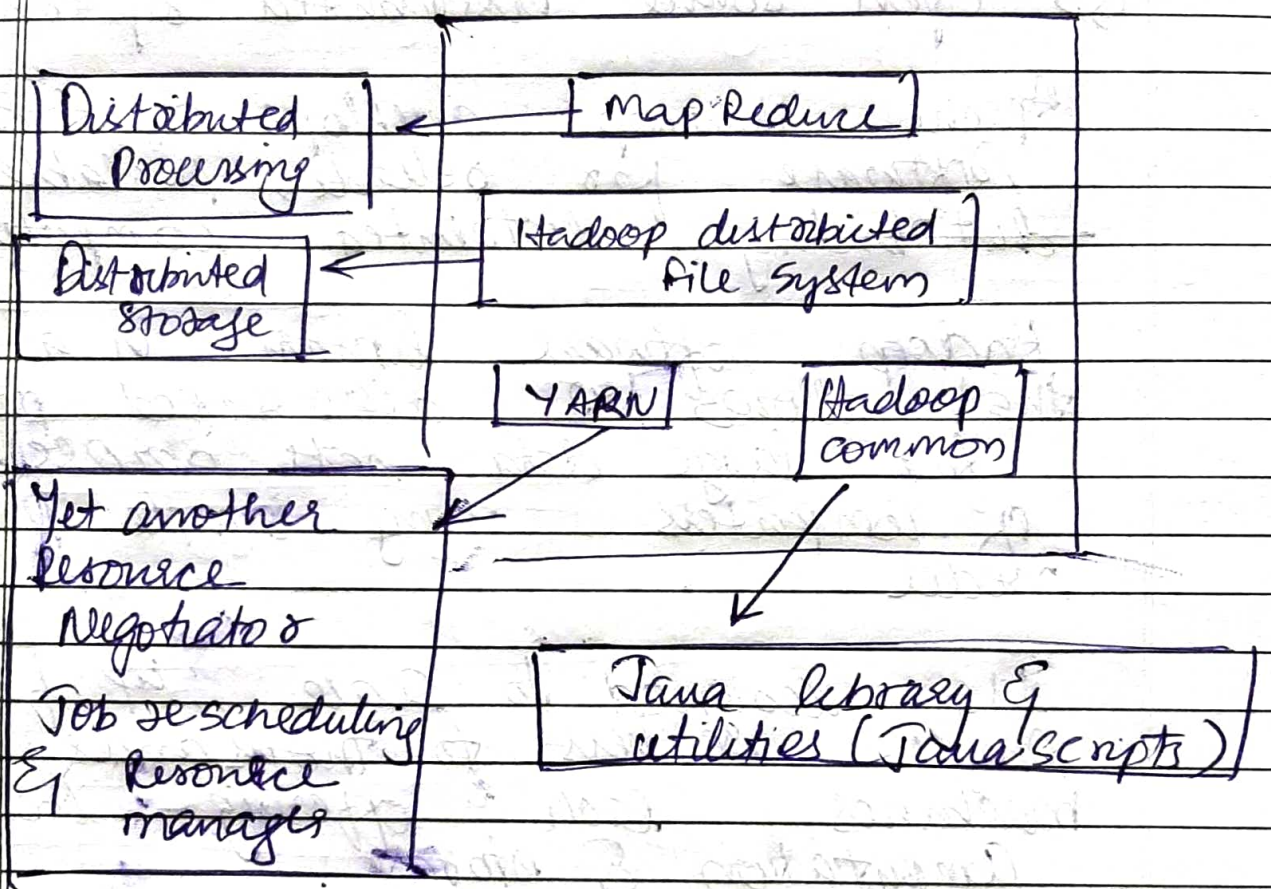 Distributed
Processing
Map Reduce
Hadoop distributed
file system
Distributed
storage
YARN
Hadoop
common
Yet another
Resource
Negotiator
Job rescheduling
& Resource
manager
Java library &
utilities (Java scripts)